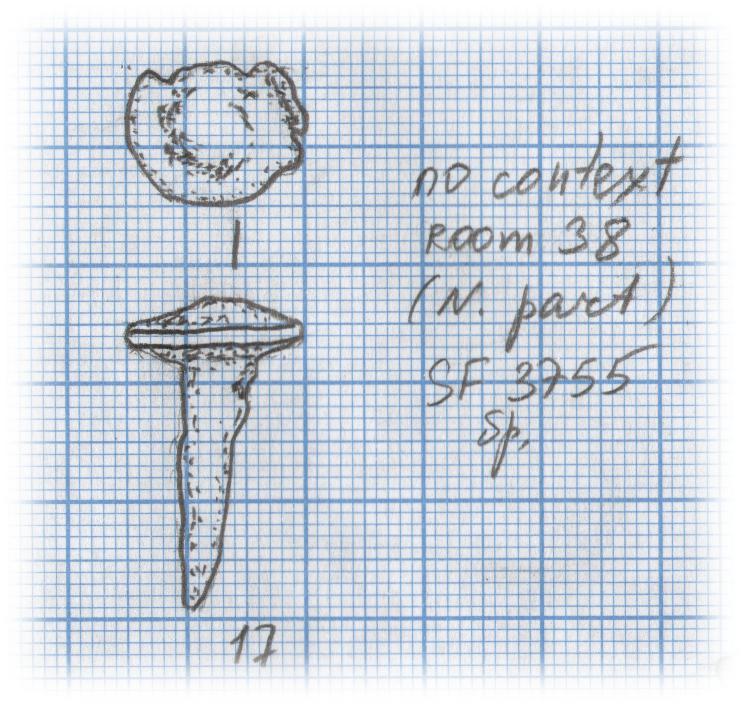 no context
Room 38
(N. part)
SF 3755
бр.
17